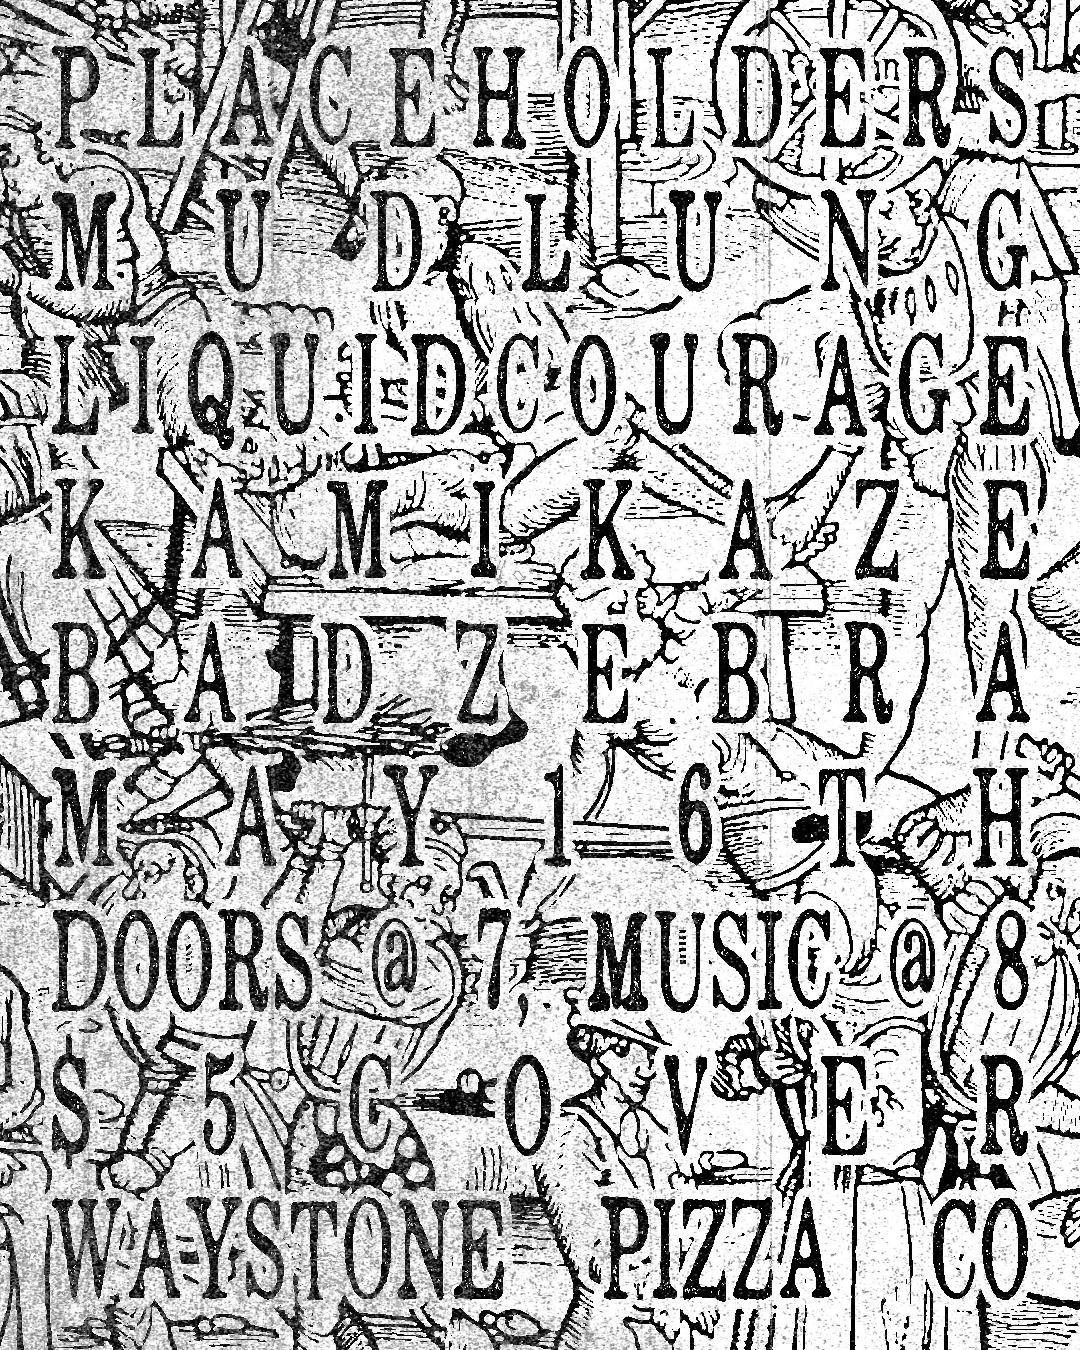 PLACEHOLDERS
MUDLUNG
LIQUIDCOURAGE
KAMIKAZE
BAD ZEBRA
MAY 16TH
DOORS @ 7, MUSIC @ 8
$5 COVER
WAYSTONE PIZZA CO